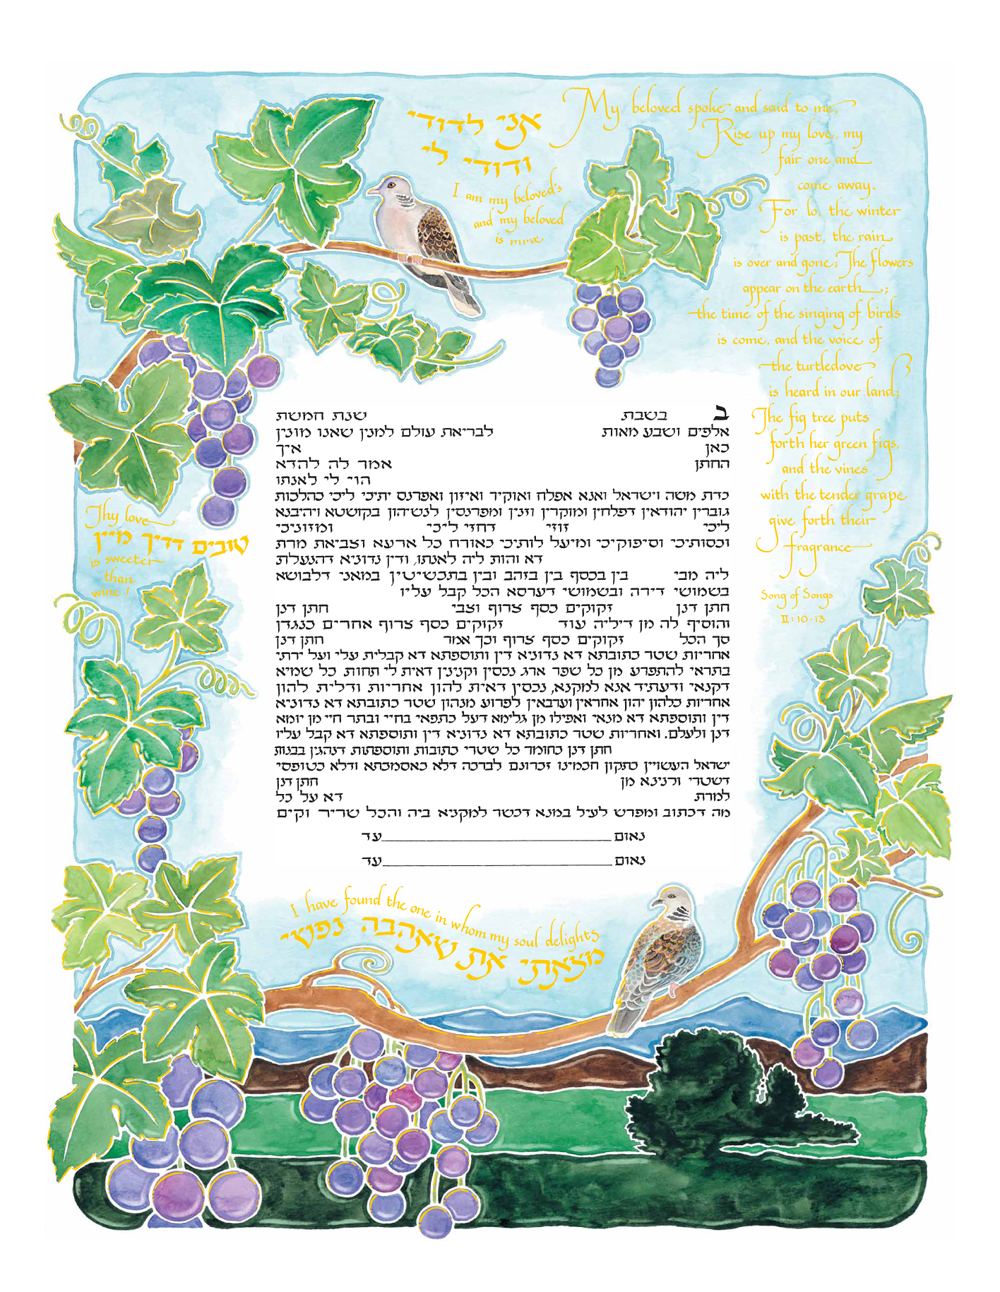 אני לדודי
ודודי לי
I am my beloved's
and my beloved
is mine
My beloved spoke and said to me,
Rise up my love, my
fair one and
come away.
For lo, the winter
is past, the rain
is over and gone; The flowers
appear on the earth;
the time of the singing of birds
is come, and the voice of
the turtledove
is heard in our land;
The fig tree puts
forth her green figs,
and the vines
with the tender grape
give forth their
fragrance
Song of Songs
II:10-13
ב בשבת שנת חמשת
אלפים ושבע מאות לבריאת עולם למנין שאנו מונין
כאן איך
החתן אמר לה להדא
הוי לי לאנתו
כדת משה וישראל ואנא אפלח ואוקיר ואיזון ואפרנס יתיכי ליכי כהלכות
גוברין יהודאין דפלחין ומוקרין וזנין ומפרנסין לנשיהון בקושטא ויהיבנא
ליכי זוזי דחזי ליכי ומזוניכי
וכסותיכי וסיפוקיכי ומיעל לותיכי כאורח כל ארעא וצביאת מרת
דא והות ליה לאנתו, ודין נדוניא דהנעלת
ליה מבי בין בכסף בין בזהב ובין בתכשיטין במאני דלבושא
בשמושי דירה ובשמושי דערסא הכל קבל עליו
חתן דנן זקוקים כסף צרוף וצבי חתן דנן
והוסיף לה מן דיליה עוד זקוקים כסף צרוף אחרים כנגדן
סך הכל זקוקים כסף צרוף וכך אמר חתן דנן
אחריות שטר כתובתא דא נדוניא דין ותוספתא דא קבלית עלי ועל ירתי
בתראי להתפרע מן כל שפר ארג נכסין וקנינין דאית לי תחות כל שמיא
דקנאי ודעתיד אנא למקנא, נכסין דאית להון אחריות ודלית להון
אחריות כלהון יהון אחראין וערבאין לפרוע מנהון שטר כתובתא דא נדוניא
דין ותוספתא דא מנאי ואפילו מן גלימא דעל כתפאי בחיי ובתר חיי מן יומא
דנן ולעלם. ואחריות שטר כתובתא דא נדוניא דין ותוספתא דא קבל עליו
חתן דנן כחומר כל שטרי כתובות ותוספתות דנהגין בבנות
ישראל העשויין כתקון חכמינו זכרונם לברכה דלא כאסמכתא ודלא כטופסי
דשטרי וקנינא מן חתן דנן
למרת דא על כל
מה דכתוב ומפרש לעיל במנא דכשר למקניא ביה והכל שריר וקים
נאום עד
נאום עד
Thy love
טובים דדיך מיין
is sweeter
than
wine!
I have found the one in whom my soul delights
מצאתי את שאהבה נפשי